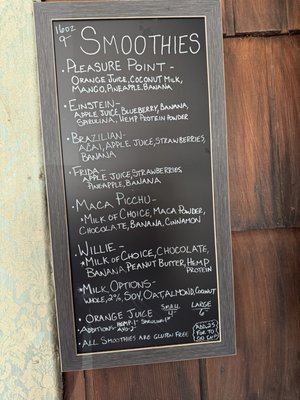 16oz
9-
SMOOTHIES
• PLEASURE POINT -
ORANGE JUICE, COCONUT MILK,
MANGO, PINEAPPLE, BANANA
• EINSTEIN -
APPLE JUICE, BLUEBERRY, BANANA,
SPIRULINA, HEMP PROTEIN POWDER
• BRAZILIAN -
ACAI, APPLE JUICE, STRAWBERRIES,
BANANA
• FRIDA -
APPLE JUICE, STRAWBERRIES,
PINEAPPLE, BANANA
• MACA PICCHU -
* MILK OF CHOICE, MACA POWDER,
CHOCOLATE, BANANA, CINNAMON
• WILLIE -
* MILK OF CHOICE, CHOCOLATE,
BANANA, PEANUT BUTTER, HEMP
PROTEIN
* MILK OPTIONS -
WHOLE, 2%, SOY, OAT, ALMOND, COCONUT
SMALL LARGE
• ORANGE JUICE 4- 6-
• ADDITIONS -
• ALL SMOOTHIES ARE GLUTEN FREE
ADD .25
FOR TO
GO CUP